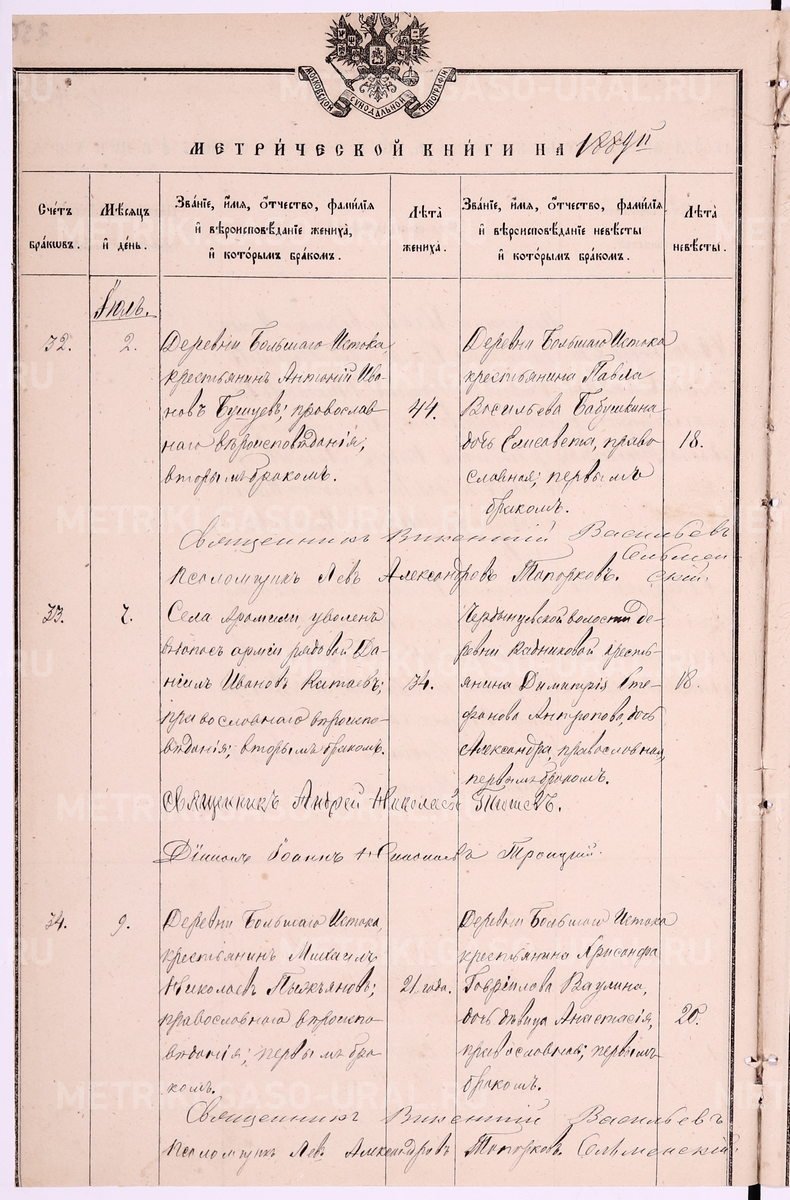 МОСКОВСКОЙ СѴНОДАЛЬНОЙ ТИПОГРАФІИ
МЕТРИ́ЧЕСКОЙ КНИ́ГИ НА 1889 й
Сче́тъ бра́кѡвъ.
Мѣ́сѧцъ и҆ де́нь.
Зва́нїе, и҆́мѧ, ѻ҆́тчество, фамѝлїѧ
и҆ вѣроисповѣ́данїе жениха̀,
и҆ кото́рымъ бра́комъ.
Лѣ́та жениха̀.
Зва́нїе, и҆́мѧ, ѻ҆́тчество, фамѝлїѧ
и҆ вѣроисповѣ́данїе невѣ́сты
и҆ кото́рымъ бра́комъ.
Лѣ́та невѣ́сты.
Іюль.
32.
2.
Деревни Большаго Истока,
крестьянинъ Антоній Ива
новъ Бушуевъ; православ
наго вѣроисповѣданія;
вторымъ бракомъ.
44.
Деревни Большаго Истока
крестьянина Павла
Васильева Бабушкина
дочь Елисавета, право
славная; первымъ
бракомъ.
18.
Священникъ Викентій Васильевъ
Сельмен
скій.
Псаломщикъ Левъ Александровъ Топорковъ.
33.
7.
Села Арамили уволен
въ запасъ арміи рядовой Да
ніилъ Ивановъ Катаевъ;
православнаго вѣроиспо
вѣданія; вторымъ бракомъ.
34.
волости де
ревни Кадниковой кресть
янина Димитрія Сте
фанова Антропова, дочь
Александра, православная,
первымъ бракомъ.
18.
Священникъ Андрей Николаевъ
Діаконъ Іоаннъ Николаевъ Троицкій.
34.
9.
Деревни Большаго Истока,
крестьянинъ Михаилъ
Николаевъ Пьянковъ;
православнаго вѣроиспо
вѣданія; первымъ бра
комъ.
21 года.
Деревни Большаго Истока
крестьянина Хрисанфа
Гавріилова Ваулина,
дочь дѣвица Анастасія,
православная; первымъ
бракомъ.
20.
Священникъ Викентій Васильевъ
Сельменскій
Псаломщикъ Левъ Александровъ Топорковъ
METRIKI.GASO-URAL.RU